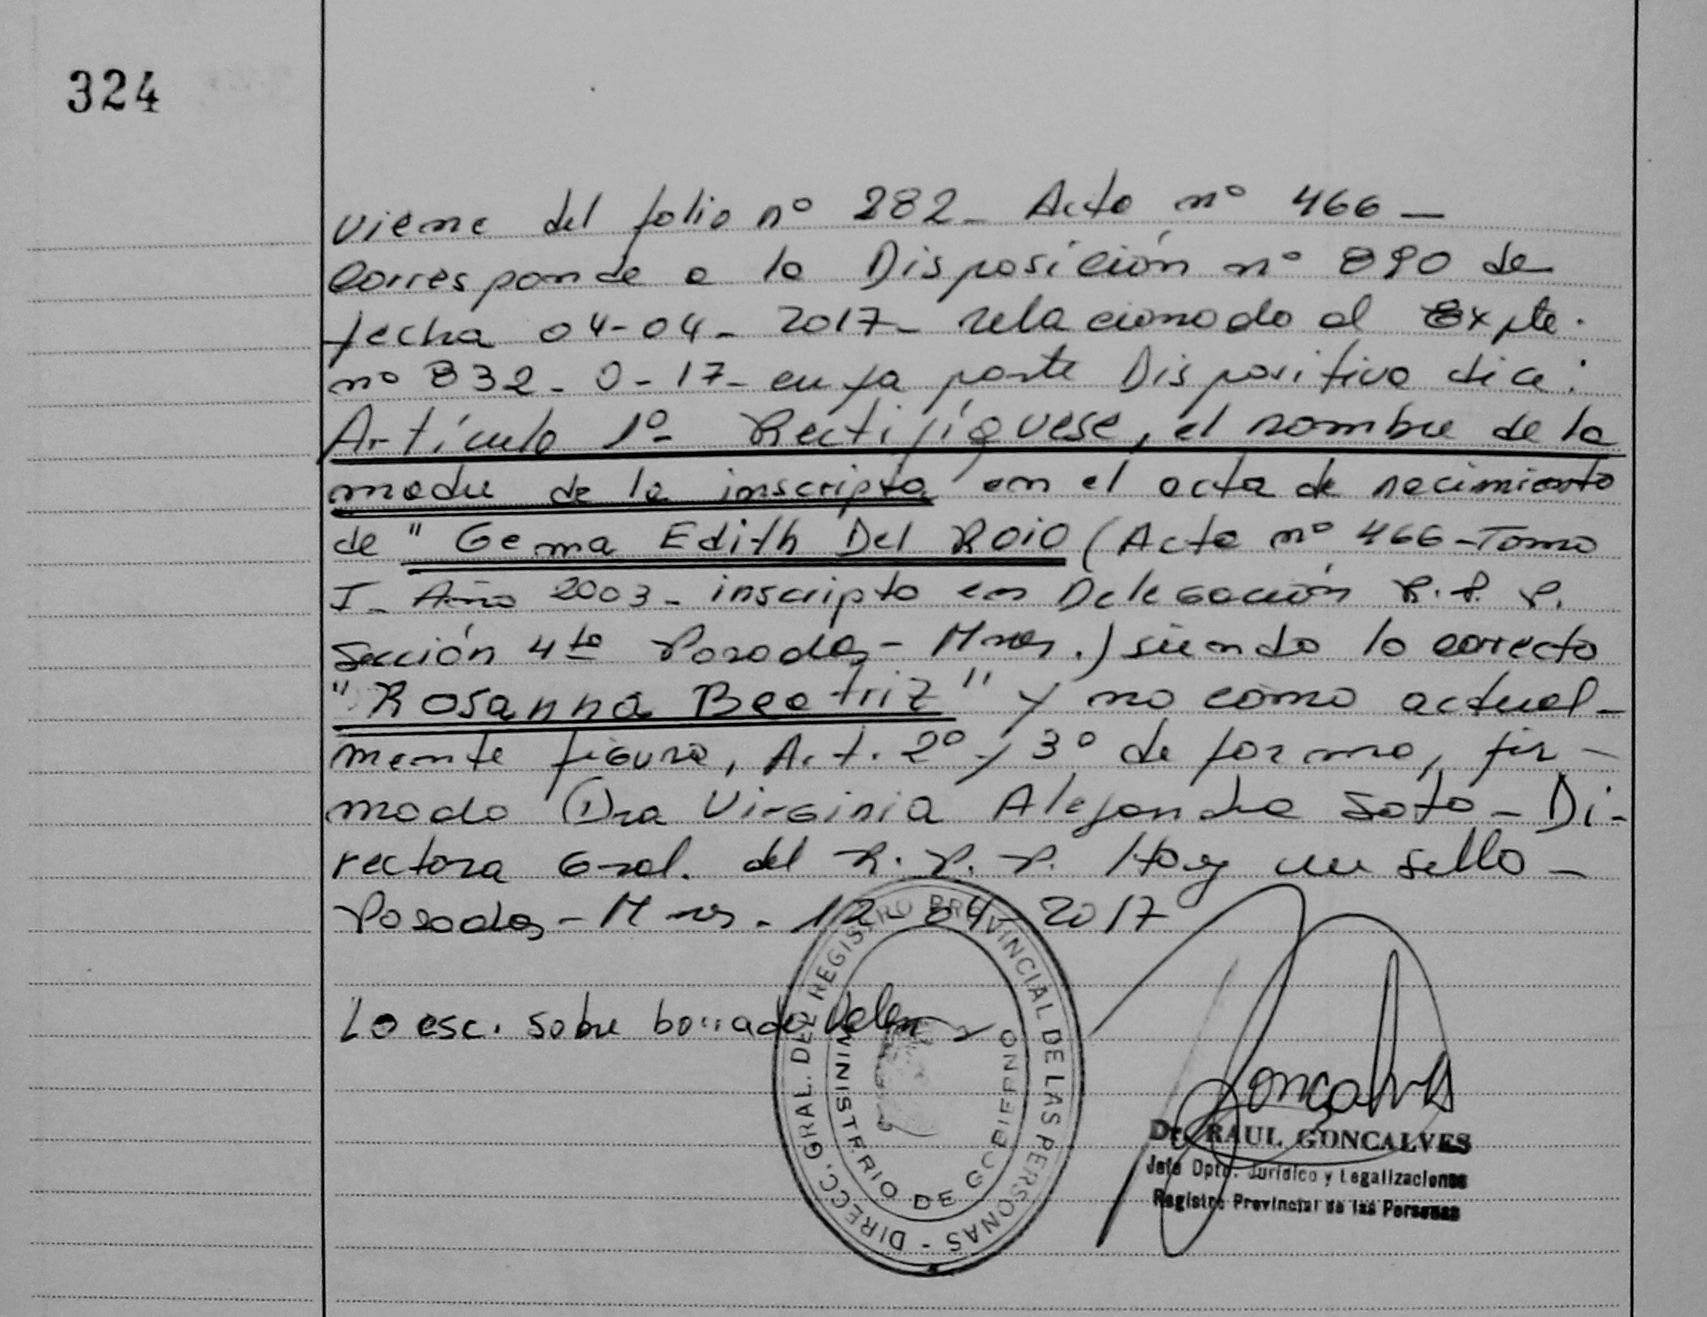 324
viene del folio nº 282_ Acta nº 466 _
Corresponde a la Disposición nº 890 de
fecha 04-04-2017_ relacionado al Expte.
nº 832_0_17_ cuya parte Dispositiva dice:
Artículo 1º_ Rectifíquese, el nombre de la
madre de la inscripta en el acta de nacimiento
de "Gema Edith Del Roio (Acta nº 466_Tomo
I_ Año 2003_ inscripta en Delegación R.P.P.
Sección 4ta Posadas_Mnes.) siendo lo correcto
"Rosanna Beatriz" y no como actual-
mente figura, Art. 2º y 3º de forma, fir-
mado Dra Virginia Alejandra Soto_ Di-
rectora Gral. del R.P.P. Hay un sello_
Posadas_Mnes. 12_04_2017
Lo esc. sobre borrado Vale
DIRECC. GRAL. DEL REGISTRO PROVINCIAL DE LAS PERSONAS -
MINISTERIO DE GOBIERNO
Goncalves
Dr. RAUL GONCALVES
Jefe Dpto. Jurídico y Legalizaciones
Registro Provincial de las Personas